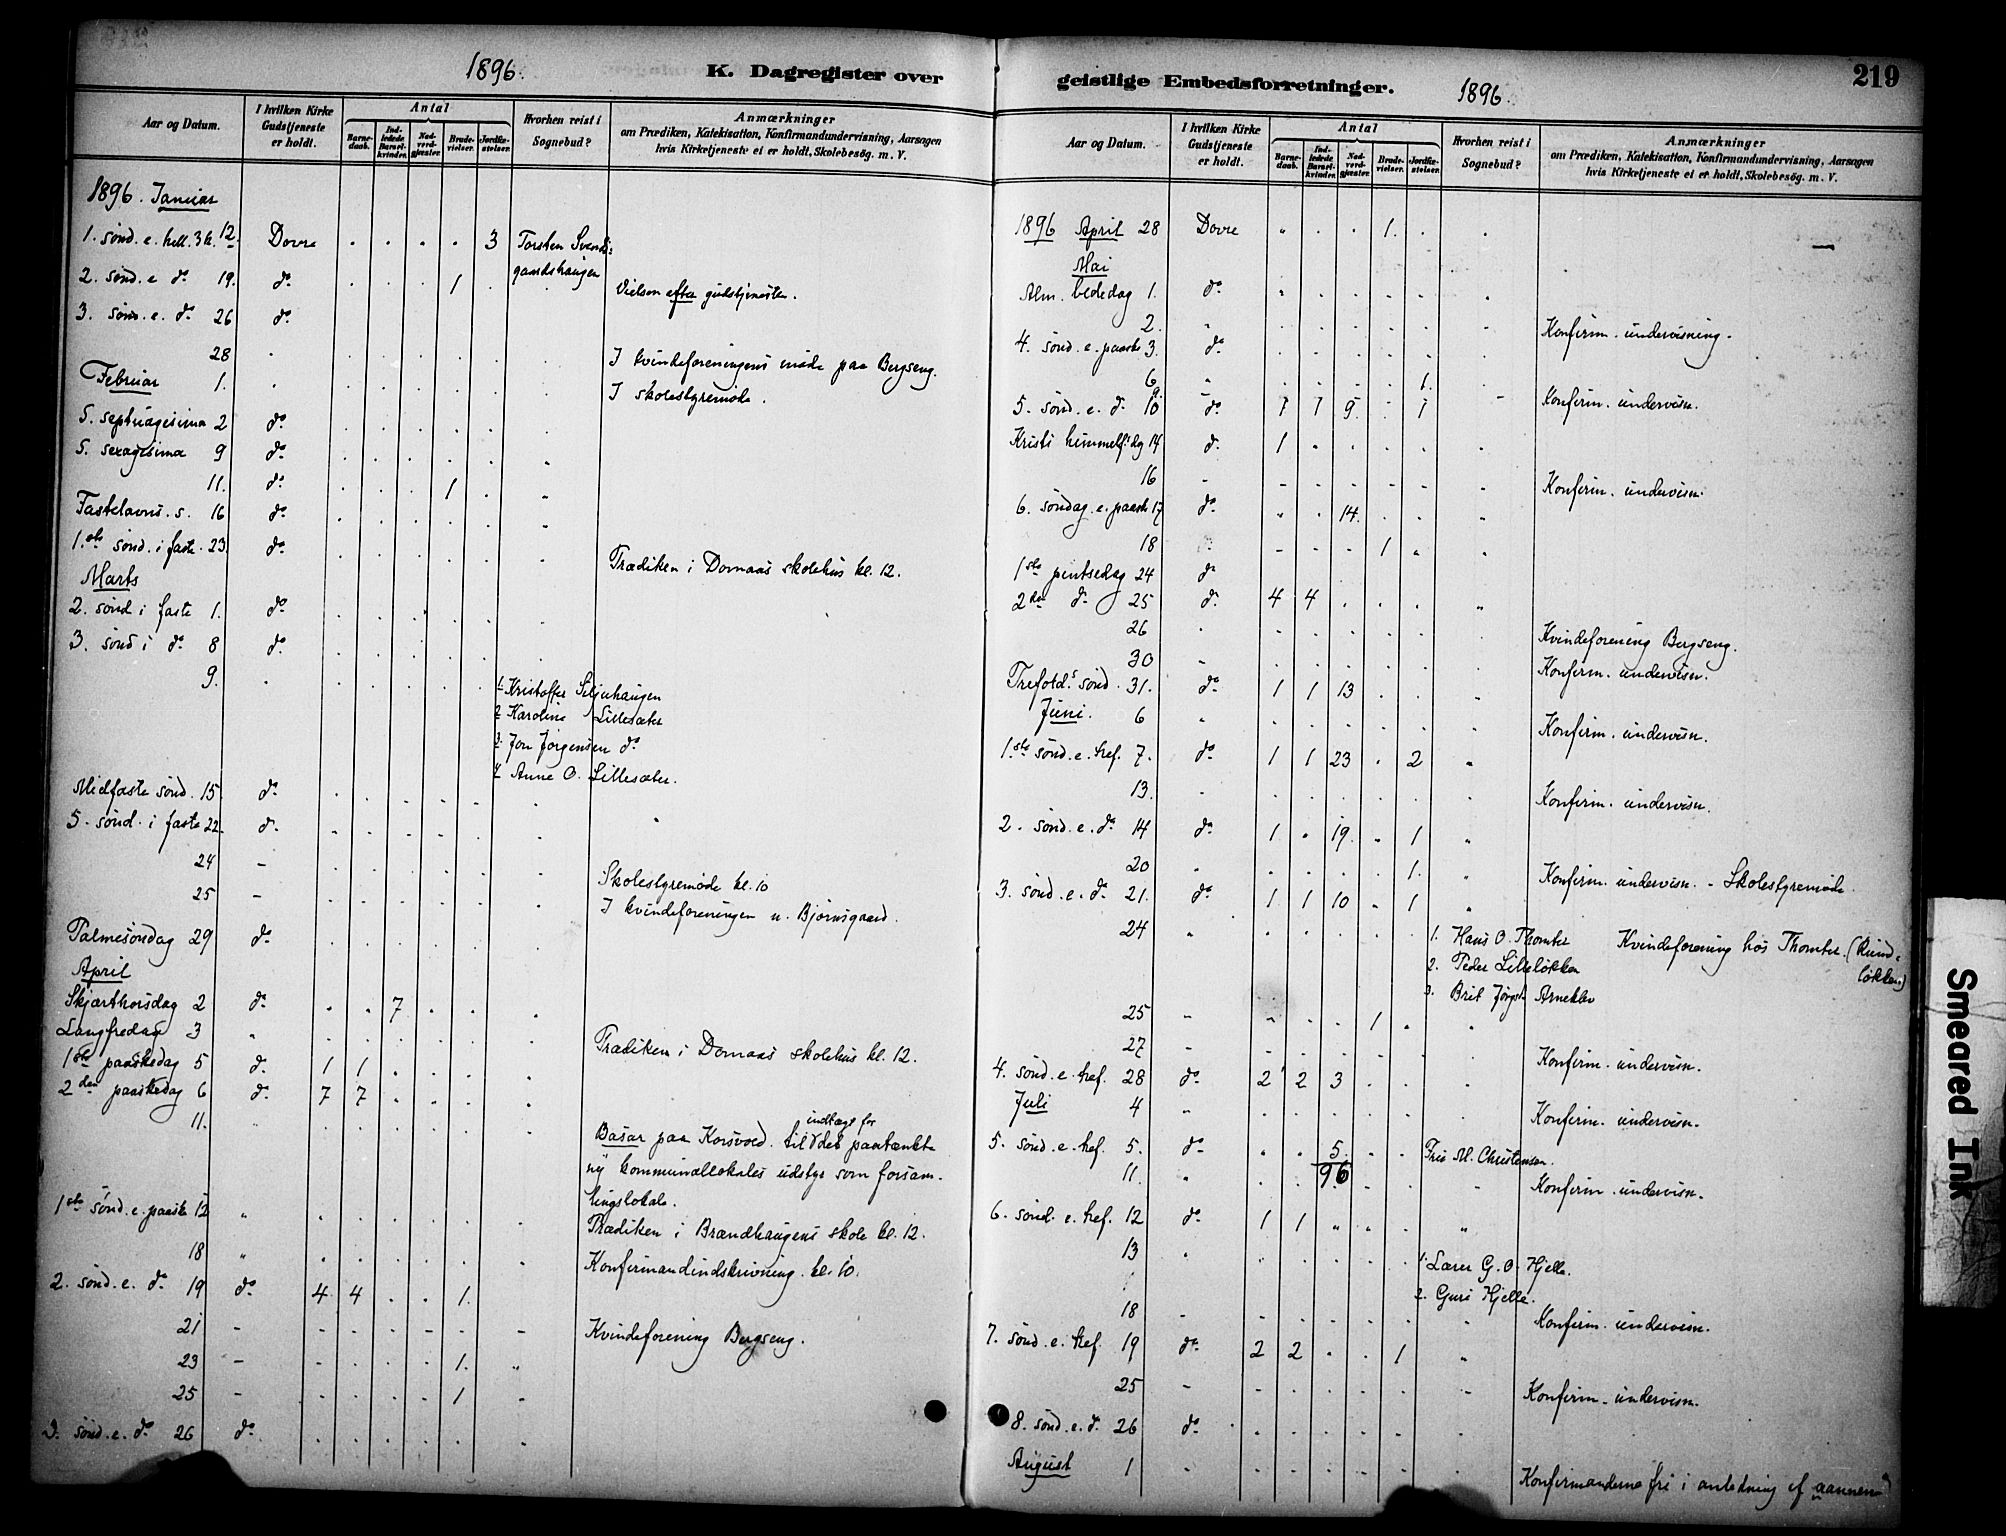 1896.
K. Dagregister over
Aar og Datum.
I hvilken Kirke Gudstjeneste er holdt.
Antal
Barne-daab.
Ind-ledede Barsel-kvinder.
Nad-verd-gjæster.
Brude-vielser.
Jordfæ-stelser.
Hvorhen reist i Sognebud?
Anmærkninger
om Prædiken, Katekisation, Konfirmandundervisning, Aarsagen
hvis Kirketjeneste ei er holdt, Skolebesøg. m. V.
1896. Januar
1. sønd. e. hell. 3 k. 12. Dovre . . . . 3 Torsten
2. sønd. e. do 19. do . . . 1 . Vielsen efter gudstjenesten.
3. sønd. e. do 26 do
28 . I kvindeforeningens møde paa Bergseng.
Februar 1. . I skolestyremøde.
S. septuagesima 2 do
S. sexagesima 9 do
11. do . . . 1 .
Fastelavns. s. 16 do
1.ste sønd. i faste. 23. do Prædiken i Domaas skolehus kl. 12.
Marts
2. sønd i faste 1. do
3. sønd i do 8 do
9. . 1. Kristoffer
2. Karoline Lillesæter
3. Jon Jørgensen do
4. Anne O. Lillesæter.
Midfaste sønd. 15. do
5. sønd. i faste 22. do
24 - Skolestyremøde kl. 10
25 - I kvindeforeningen n. Bjørnsgaard.
Palmesøndag 29 do
April
Skjærthorsdag 2 do . . 7 . .
Langfredag 3 " Prædiken i Domaas skolehus kl. 12.
1ste paaskedag 5 do 1 1 . . .
2den paaskedag 6 do 7 7 . . .
11. indtægt for
Basar paa Korsvold. til det paatænkte
ny kommunallokales udstyr som forsam-
lingslokale.
1ste sønd. e. paaske 12 " Prædiken i Brændhaugens skole kl. 12.
18 " Konfirmandindskrivning. kl. 10.
2. sønd. e. do 19 do 4 4 . . 1.
21 - Kvindeforening Bergseng.
23 - . . . . 1.
25 - . . . . 1
3. sønd. e. do 26 do
geistlige Embedsforretninger.
1896.
219
Aar og Datum.
I hvilken Kirke Gudstjeneste er holdt.
Antal
Barne-daab.
Ind-ledede Barsel-kvinder.
Nad-verd-gjæster.
Brude-vielser.
Jordfæ-stelser.
Hvorhen reist i Sognebud?
Anmærkninger
om Prædiken, Katekisation, Konfirmandundervisning, Aarsagen
hvis Kirketjeneste ei er holdt, Skolebesøg. m. V.
1896 April 28 Dovre " . . 1. .
Mai
Alm. bededag 1. do
2. " Konfirm. undervisning.
4. sønd. e. paaske 3. do
6 " . . . . 1.
9. - Konfirm. undervisn.
5. sønd. e. do 10 do 1 1 9. . 1
Kristi himmelf.s dg 14 do 1 . . . .
16 - Konfirm. undervisn.
6. søndag. e. paaske 17 do " . 14. . .
18 . - . . 1 "
1ste pintsedag 24 do
2den do 25 do 4 4 . . .
26 . Kvindeforening Bergseng.
30 " Konfirm. undervisn.
Trefold.s sønd. 31. do 1 1 13 . .
Juni. 6 " Konfirm. undervisn.
1ste sønd. e. tref. 7. do 1 1 23 . 2
13. - Konfirm. undervisn.
2. sønd. e. do 14 do 1 . 19. " 1
20 " . . . . 1. Konfirm. undervisn. - Skolestyremøde.
3. sønd. e. do 21. do 1 1 10 " 1
24 " 1. Hans O. Thomter Kvindeforening hos Thomter.
2. Peder Lilleløkken
3. Brit
25 - . . . 1 .
27 - Konfirm. undervisn.
4. sønd. e. tref. 28 do 2 2 3 . .
Juli 4 " Konfirm. undervisn.
5. sønd. e. tref. 5. do . . 5. . . M. Christensen.
96
11. " Konfirm. undervisn.
6. sønd. e. tref. 12 do 1 1 " " .
13 " 1. Lærer G. O. Hjelle.
2. Guri Hjelle.
18 - Konfirm. undervisn.
7. sønd. e. tref. 19 do 2 2 . . 1
25 - Konfirm. undervisn.
8. sønd. e. do 26 do
August 1 Konfirmanderne fri i anledning af
Smeared Ink